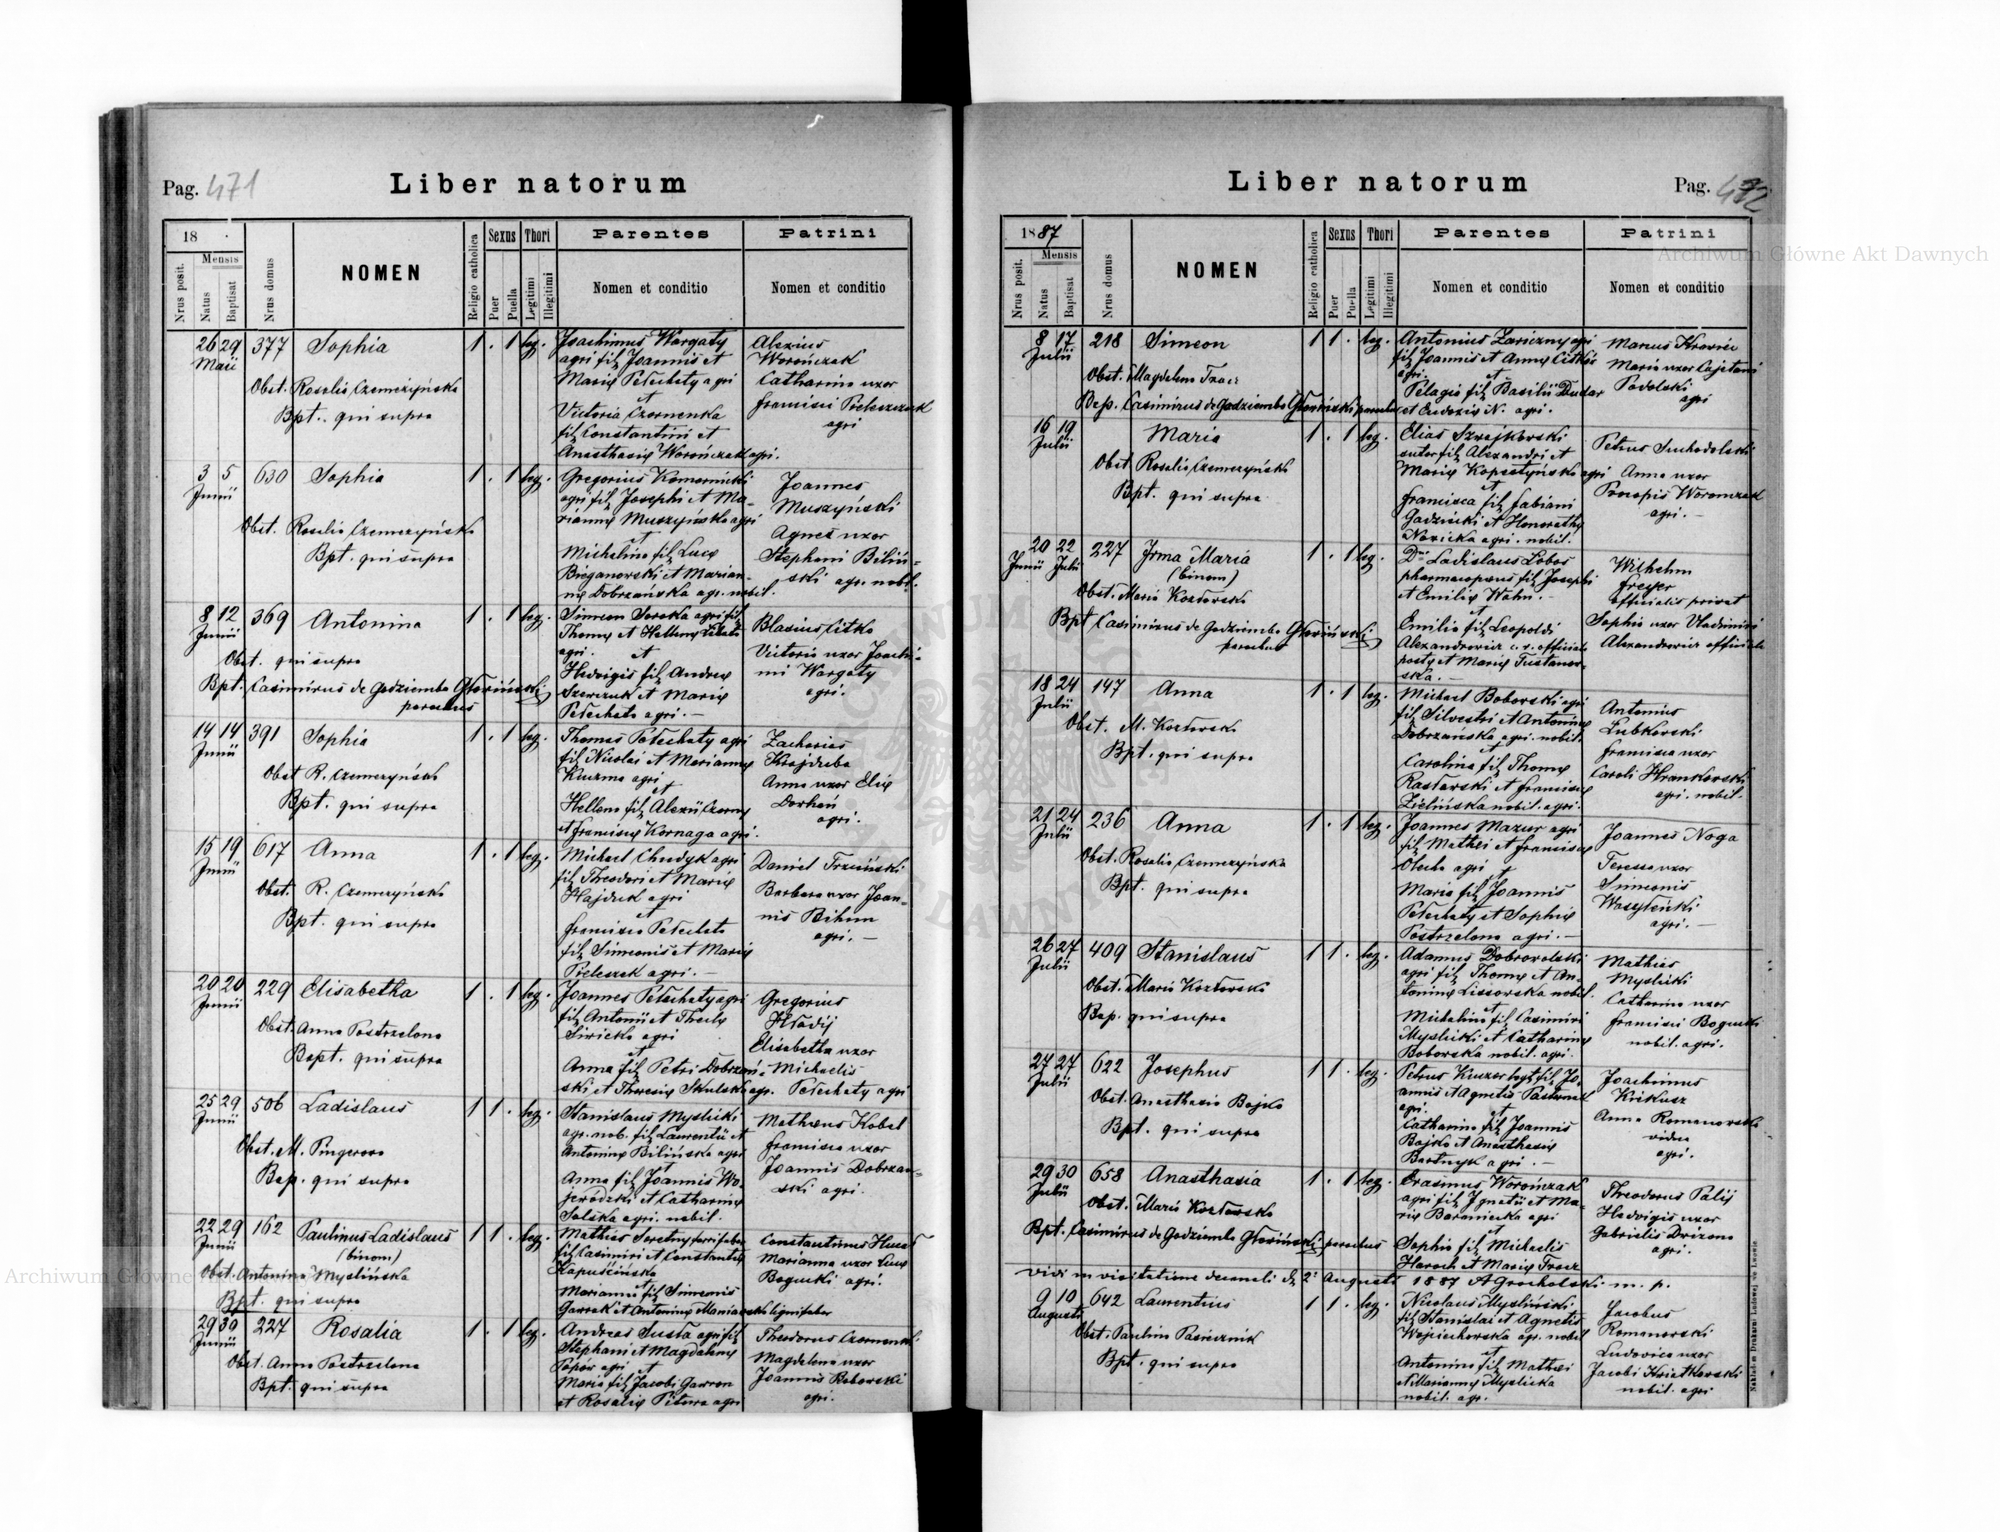 Pag. 471
Liber natorum
18
Mensis
Nrus posit.
Natus
Baptisat
Nrus domus
NOMEN
Religio catholica
Sexus
Puer
Puella
Thori
Legitimi
Illegitimi
Parentes
Nomen et conditio
Patrini
Nomen et conditio
26 29 377 Sophia 1 . 1 leg.
Maii
Obst. Rosalia Czemerzyńska
Bpt. qui supra
Joachimus Wargaty
agri fil. Joannis et
Mariæ Petechaty agri
et
Victoria Czornenka
fil. Constantini et
Anasthasiæ Worończak agri.
Alexius
Worończak
Catharina uxor
Francisci Pieleszczuk
agri
3 5 630 Sophia 1 . 1 leg.
Junii
Obst. Rosalia Czemerzyńska
Bpt. qui supra
Gregorius Komarnicki
agri fil. Josephi et Ma-
riannæ Muszyńska agri
et
Michalina fil. Lucæ
Bieganowski et Marian-
næ Dobrzańska agr. nobil.
Joannes
Muszyński
Agnes uxor
Stephani Biliń-
ski agr. nobil.
8 12 369 Antonina 1 . 1 leg.
Junii
Obst. qui supra
Bpt. Casimirus de Godziemba Głowiński
parochus
Simeon Soroka agri fil.
Thomæ et Hellenæ
agri. et
Hedvigis fil. Andreæ
Szewczuk et Mariæ
Petechata agri. —
Blasius Citko
Victoria uxor Joachi-
mi Wargaty
agri.
14 14 391 Sophia 1 . 1 leg.
Junii
Obst R. Czemerzyńska
Bpt. qui supra
Thomas Petechaty agri
fil. Nicolai et Mariannæ
Kuczma agri
et
Hellena fil. Alexii Czorny
et Franciscæ Kornaga agri.
Zacharias
Krajduba
Anna uxor Eliæ
Dorhań
agri.
15 19 617 Anna 1 . 1 leg.
Junii
Obst. R. Czemerzyńska
Bpt. qui supra
Michael Chudyk agri
fil. Theodori et Mariæ
Hajduk agri
et
Francisca Petechata
fil. Simeonis et Mariæ
agri. —
Daniel Trzciński
Barbara uxor Joan-
nis Bihun
agri. —
20 20 229 Elisabetha 1 . 1 leg.
Junii
Obst. Anna Postrzelona
Bapt. qui supra
Joannes Petechaty agri
fil. Antonii et Theclæ
Siricka agri
et
Anna fil. Petri Dobrzań-
ski et Theresiæ Skulska agr.
Gregorius
Hładij
Elisabetha uxor
Michaelis
Petechaty agri
25 29 506 Ladislaus 1 1 . leg.
Junii
Obst. M. Pingerova
Bap. qui supra
Stanislaus Myslicki
agr. nob. fil. Laurentii et
Antoninæ Bilińska agri
et
Anna fil. Joannis Wo-
jewódzki et Catharinæ
Solska agri. nobil.
Mathæus Kobel
Francisca uxor
Joannis Dobrzań-
ski agri.
22 29 162 Paulinus Ladislaus 1 1 . leg.
Junii
(binom)
Obst. Antonina Myslińska
Bpt. qui supra
Mathias Seretny ferri faber
fil. Casimiri et Constantiæ
Kapuścińska
Marianna fil. Simeonis
Gawrak et Antoninæ lignifaber
Constantinus
Marianna uxor Lucæ
Bogucki agri.
29 30 227 Rosalia 1 . 1 leg.
Junii
Obst. Anna Postrzelona
Bpt. qui supra
Andreas Susta agri fil.
Stephani et Magdalenæ
Popów agri et
Maria fil. Jacobi Gawron
et Rosaliæ Pitura agri
Theodorus Czornenki
Magdalena uxor
Joannis Boborski
agri.
Liber natorum
Pag. 472
1887
Mensis
Nrus posit.
Natus
Baptisat
Nrus domus
NOMEN
Religio catholica
Sexus
Puer
Puella
Thori
Legitimi
Illegitimi
Parentes
Nomen et conditio
Patrini
Nomen et conditio
8 17 218 Simeon 1 1 . leg.
Julii
Obst. Magdalena Tracz
Bap. Casimirus de Godziemba Głowiński parochus
Antonius Zariczny agri
fil. Joannis et Annæ
agri. et
Pelagia fil. Basilii Dudar
et Eudoxiæ N. agri.
Marcus Krawiec
Maria uxor Cajetani
Podolski
agri
16 19 Maria 1 . 1 leg.
Julii
Obst. Rosalia Czemerzyńska
Bpt. qui supra
Elias Szrajkowski
sutor fil. Alexandri et
Mariæ Kopestyńska agri
et
Francisca fil. Fabiani
Gadziński et Honorathæ
Nowicka agri. nobil.
Petrus Suchodolski
Anna uxor
Procopii Worończak
agri. —
20 22 227 Irma Maria 1 . 1 leg.
Junii Julii
(binom)
Obst. Maria Kozłowska
Bpt Casimirus de Godziemba Głowiński
parochus
Dr. Ladislaus Lobos
pharmacopæus fil. Josephi
et Emiliæ Wahn. —
et
Emilia fil. Leopoldi
Alexandrowicz c. r. officialis
postæ et Mariæ Tustanow-
ska. —
Wilhelm
Freyer
officialis privat
Sophia uxor Vladimiri
Alexandrowicz officialis
18 24 147 Anna 1 . 1 leg.
Julii
Obst. M. Kozłowska
Bpt. qui supra
Michael Boborski agri
fil. Silvestri et Antoninæ
Dobrzańska agri. nobil.
et
Carolina fil. Thomæ
Rastawski et Franciscæ
Zielińska nobil. agri.
Antonius
Lubkowski
Francisca uxor
Caroli Hrankowski
agri. nobil.
21 24 236 Anna 1 . 1 leg.
Julii
Obst. Rosalia Czemerzyńska
Bpt. qui supra
Joannes Mazur agri
fil. Mathei et Franciscæ
Olech agri et
Maria fil. Joannis
Petechaty et Sophiæ
Postrzelona agri. —
Joannes Noga
Teressa uxor
Simeonis
Wasyleńki
agri. —
26 27 409 Stanislaus 1 1 . leg.
Julii
Obst. Maria Kozłowska
Bap. qui supra
Adamus Dobrowolski
agri fil. Thomæ et An-
toninæ Lissowska nobil.
et
Michalina fil. Casimiri
Myslicki et Catharinæ
Boborska nobil. agri.
Mathias
Myslicki
Catharina uxor
Francisci Bogucki
nobil. agri.
27 27 622 Josephus 1 1 . leg.
Julii
Obst. Anasthasia Bojko
Bpt. qui supra
Petrus Kuczer fil. Jo-
annis et Agnetis Pasternak
agri. et
Catharina fil. Joannis
Bojko et Anasthasiæ
Bartnyk agri. —
Joachimus
Krikusz
Anna Romanowska
vidua
agri.
29 30 658 Anasthasia 1 . 1 leg.
Julii
Obst. Maria Kozłowska
Bpt. Casimirus de Godziemba Głowiński parochus
Erasmus Worończak
agri fil. Ignatii et Ma-
riæ Baraniecka agri
et
Sophia fil. Michaelis
Haroch et Mariæ Tracz
Theodorus Palij
Hedvigis uxor
Gabrielis Drizona
agri.
Vidi in visitatione decanali d. 2 Augusti 1887 A Grocholski m. p.
9 10 642 Laurentius 1 1 . leg.
Augusti
Obst. Paulina Pasiecznik
Bpt. qui supra
Nicolaus Mysliński
fil. Stanislai et Agnetis
Wojciechowska agr. nobil
et
Antonina fil. Mathæi
et Mariannæ Myslicka
nobil. agr.
Jacobus
Romanowski
Ludovica uxor
Jacobi Kwiatkowski
nobil. agri
Nakładem Drukarni Ludowej we Lwowie.
Archiwum Główne Akt Dawnych
Archiwum Główne Akt Dawnych